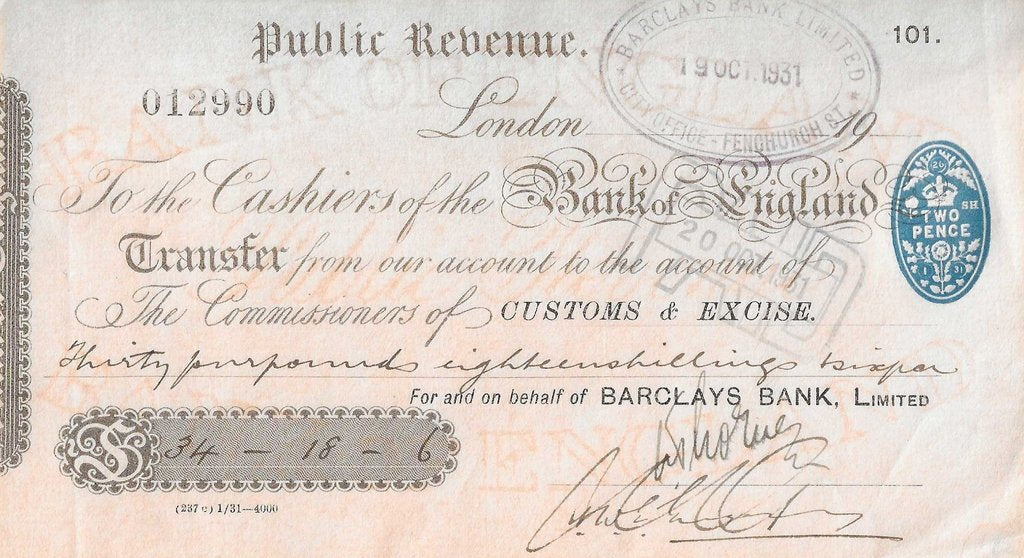 Public Revenue.
101.
BARCLAYS BANK LIMITED
19 OCT 1931
CITY OFFICE - FENCHURCH ST.
012990
London 19
To the Cashiers of the Bank of England
20 OCT 1931
26
SH
TWO
PENCE
1 31
Transfer from our account to the account of
The Commissioners of CUSTOMS & EXCISE.
Thirty four pounds eighteen shillings & six
For and on behalf of BARCLAYS BANK, LIMITED
£ 34 - 18 - 6
(237 c) 1/31—4000